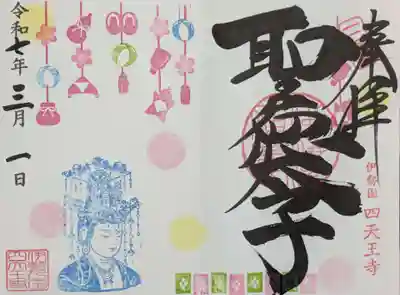 奉拝
聖徳太子
伊勢国 四天王寺
令和七年三月一日